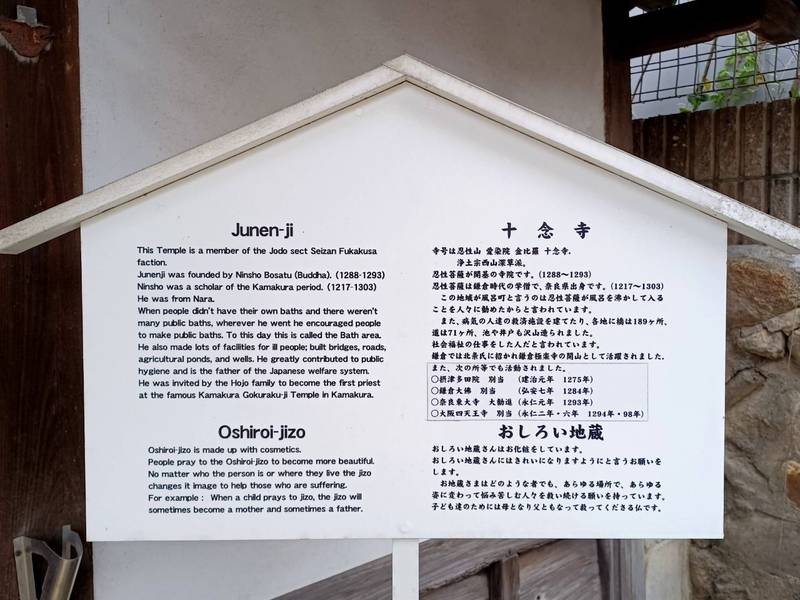 Junen-ji
This Temple is a member of the Jodo sect Seizan Fukakusa
faction.
Junenji was founded by Ninsho Bosatu (Buddha). (1288-1293)
Ninsho was a scholar of the Kamakura period. (1217-1303)
He was from Nara.
When people didn't have their own baths and there weren't
many public baths, wherever he went he encouraged people
to make public baths. To this day this is called the Bath area.
He also made lots of facilities for ill people; built bridges, roads,
agricultural ponds, and wells. He greatly contributed to public
hygiene and is the father of the Japanese welfare system.
He was invited by the Hojo family to become the first priest
at the famous Kamakura Gokuraku-ji Temple in Kamakura.
Oshiroi-jizo
Oshiroi-jizo is made up with cosmetics.
People pray to the Oshiroi-jizo to become more beautiful.
No matter who the person is or where they live the jizo
changes it image to help those who are suffering.
For example : When a child prays to jizo, the jizo will
sometimes become a mother and sometimes a father.
十 念 寺
寺号は忍性山 愛染院 金比羅 十念寺.
浄土宗西山深草派。
忍性菩薩が開基の寺院です。(1288～1293)
忍性菩薩は鎌倉時代の学僧で、奈良県出身です。(1217～1303)
この地域が風呂町と言うのは忍性菩薩が風呂を沸かして入る
ことを人々に勧めたからと言われています。
また、病気の人達の救済施設を建てたり、各地に橋は189ヶ所、
道は71ヶ所、池や井戸も沢山造られました。
社会福祉の仕事をした人だと言われています。
鎌倉では北条氏に招かれ鎌倉極楽寺の開山として活躍されました.
また、次の所等でも活動されました。
○摂津多田院 別当 (建治元年 1275年)
○鎌倉大佛 別当 (弘安七年 1284年)
○奈良東大寺 大勧進 (永仁元年 1293年)
○大阪四天王寺 別当 (永仁二年・六年 1294年・98年)
おしろい地蔵
おしろい地蔵さんはお化粧をしています。
おしろい地蔵さんにはきれいになりますようにと言うお願いを
します。
お地蔵さまはどのような者でも、あらゆる場所で、あらゆる
姿に変わって悩み苦しむ人々を救い続ける願いを持っています。
子ども達のためには母となり父ともなって救ってくださる仏です。